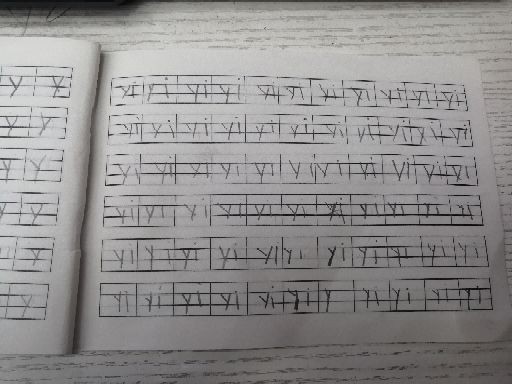 y y yi yi yi yi yi yi yi yi yi yi yi
y y yi yi yi yi yi yi yi yi yi yi yi
y y yi yi yi yi yi yi yi yi yi yi yi
y y yi yi yi yi yi yi yi yi yi yi yi
y yi yi yi yi yi yi yi yi yi yi yi
y yi yi yi yi yi yi y yi yi yi yi